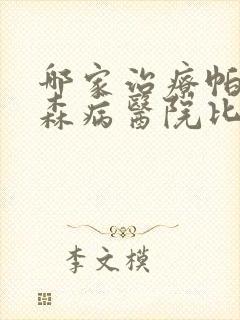 哪家治療帕
森病醫院比
李文模